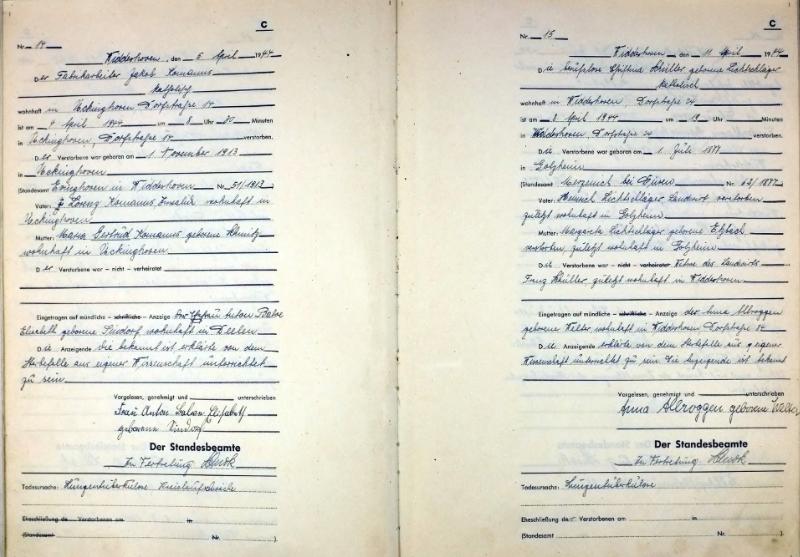 C
Nr. 14
Widdershoven, den 5 April 1944
Der Fabrikarbeiter Jakob Komanns
katholisch
wohnhaft in Ückinghoven Dorfstraße 84
ist am 4 April 1944 um 8 Uhr 30 Minuten
in Ückinghoven, Dorfstraße 84 verstorben.
D er Verstorbene war geboren am 1 November 1913
in Ückinghoven
(Standesamt Evinghoven in Widdershoven Nr. 51/1913
Vater: Lorenz Komanns Invalide wohnhaft in
Ückinghoven
Mutter: Maria Gertrud Komanns geborene Schmitz
wohnhaft in Ückinghoven
D er Verstorbene war – nicht – verheiratet
Eingetragen auf mündliche – schriftliche – Anzeige der Ehefrau Anton
Elisabeth geborene Sindorf wohnhaft in
D ie Anzeigende die bekannt ist erklärte von dem
Sterbefalle aus eigener Wissenschaft unterrichtet
zu sein
Vorgelesen, genehmigt und unterschrieben
Frau Anton Elisabeth
geborene Sindorf
Der Standesbeamte
In Vertretung
Todesursache: Lungentuberkulose Kreislaufschwäche
Eheschließung de Verstorbenen am in
(Standesamt Nr. ).
C
Nr. 15
Widdershoven den 11 April 1944
D ie berufslose Christina Schüller geborene Lichtschläger
katholisch
wohnhaft in Widdershoven, Dorfstraße 24
ist am 8 April 1944 um 19 Uhr Minuten
in Widdershoven Dorfstraße 24 verstorben.
D ie Verstorbene war geboren am 1 Juli 1877
in Golzheim
(Standesamt Merzenich bei Düren Nr. 62/1877
Vater: Heinrich Lichtschläger Landwirt verstorben
zuletzt wohnhaft in Golzheim
Mutter: Margareta Lichtschläger geborene
verstorben, zuletzt wohnhaft in Golzheim
D ie Verstorbene war – nicht – verheiratet Witwe des Landwirts
Franz Schüller zuletzt wohnhaft in Widdershoven
Eingetragen auf mündliche – schriftliche – Anzeige der Anna Albroggen
geborene Walter wohnhaft in Widdershoven Dorfstraße
D ie Anzeigende erklärte von dem Sterbefalle aus eigener
Wissenschaft unterrichtet zu sein Die Anzeigende ist bekannt
Vorgelesen, genehmigt und unterschrieben
Anna Albroggen geborene Walter
Der Standesbeamte
In Vertretung
Todesursache: Lungentuberkulose
Eheschließung de Verstorbenen am in
(Standesamt Nr. ).